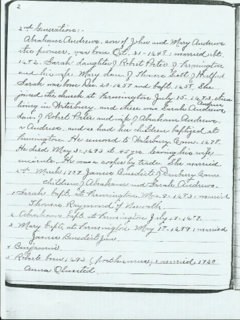 2
2nd Generation:-
Abraham Andrews, son of John and Mary Andrews
the pioneer, was born Oct. 31-1648. married abt
1672. Sarah, daughter of Robert Porter of Farmington
and his wife Mary dau. of Thomas Scott of Hartford
Sarah was born Dec. 20-1657 and bapt. 1658. She
joined the church at Farmington July 15,
living in Waterbury, and there was Sarah Andrews
dau. of Robert Porter and wife of Abraham Andrews,
Andrews, and so had her children baptized at
Farmington. He removed to Waterbury
He died May 3, 1693 a. 45 yrs. leaving his wife
executrix. He was a cooper by trade. She married
James Benedict of Danbury Conn.
children of Abraham and Sarah Andrews.
1 Sarah bapt. at Farmington married
Thomas Raymond of Norwalk.
2 Abraham bapt. at Farmington July
3 Mary bapt. at Farmington, May married
James Benedict Jr.
4 Benjamin
5 Robert born 1693 (posthumous) married
Anna Olmsted.